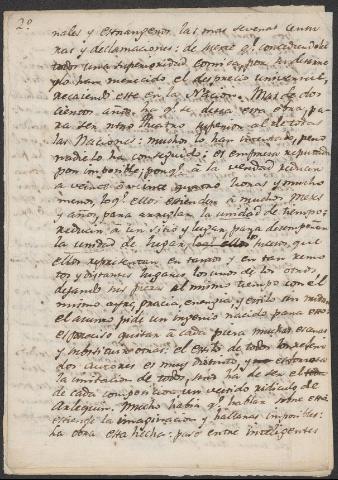 2º
nales y estrangeros las mas severas censu
ras y declamaciones: de suerte qᵉ concediendole
todo una superioridad comica, por su desarre
glo han merecido el desprecio universal,
recaiendo este en la Nacion. Mas de dos
cientos años ha qᵉ se desea esta obra, pa
ra ser ntro theatro superior al de todas
las Naciones: muchos lo han intentado, pero
nadie lo ha conseguido: es empresa reputada
por imposible; porqᵉ à la verdad reducir
a veinte ò veinte y quatro horas y mucho
menos, lo qᵉ ellos estienden à muchos meses
y años, para arreglar la unidad de tiempo:
reducir à un sitio y lugar, para desempeñar
la unidad de lugar, los hechos, que
ellos representan en tantos y en tan remo
tos y distantes lugares los unos de los otros,
dejando la pieza al mismo tiempo con el
mismo ayre, gracia, energia, y estilo sin mudar
el asumpto pide un ingenio nacido para esto:
es preciso quitar à cada pieza muchas escenas
y sostituir otras: el estilo de todos los refe
dos autores es muy distinto, y es forzosa
la imitacion de todos, sino ha de ser el todo
de cada composicion un vestido ridiculo de
Arlequin. Mucho habia qᵉ hablar sobre esto
estiende la imaginacion y hallaras imposibles:
la obra esta hecha: pasó entre inteligentes